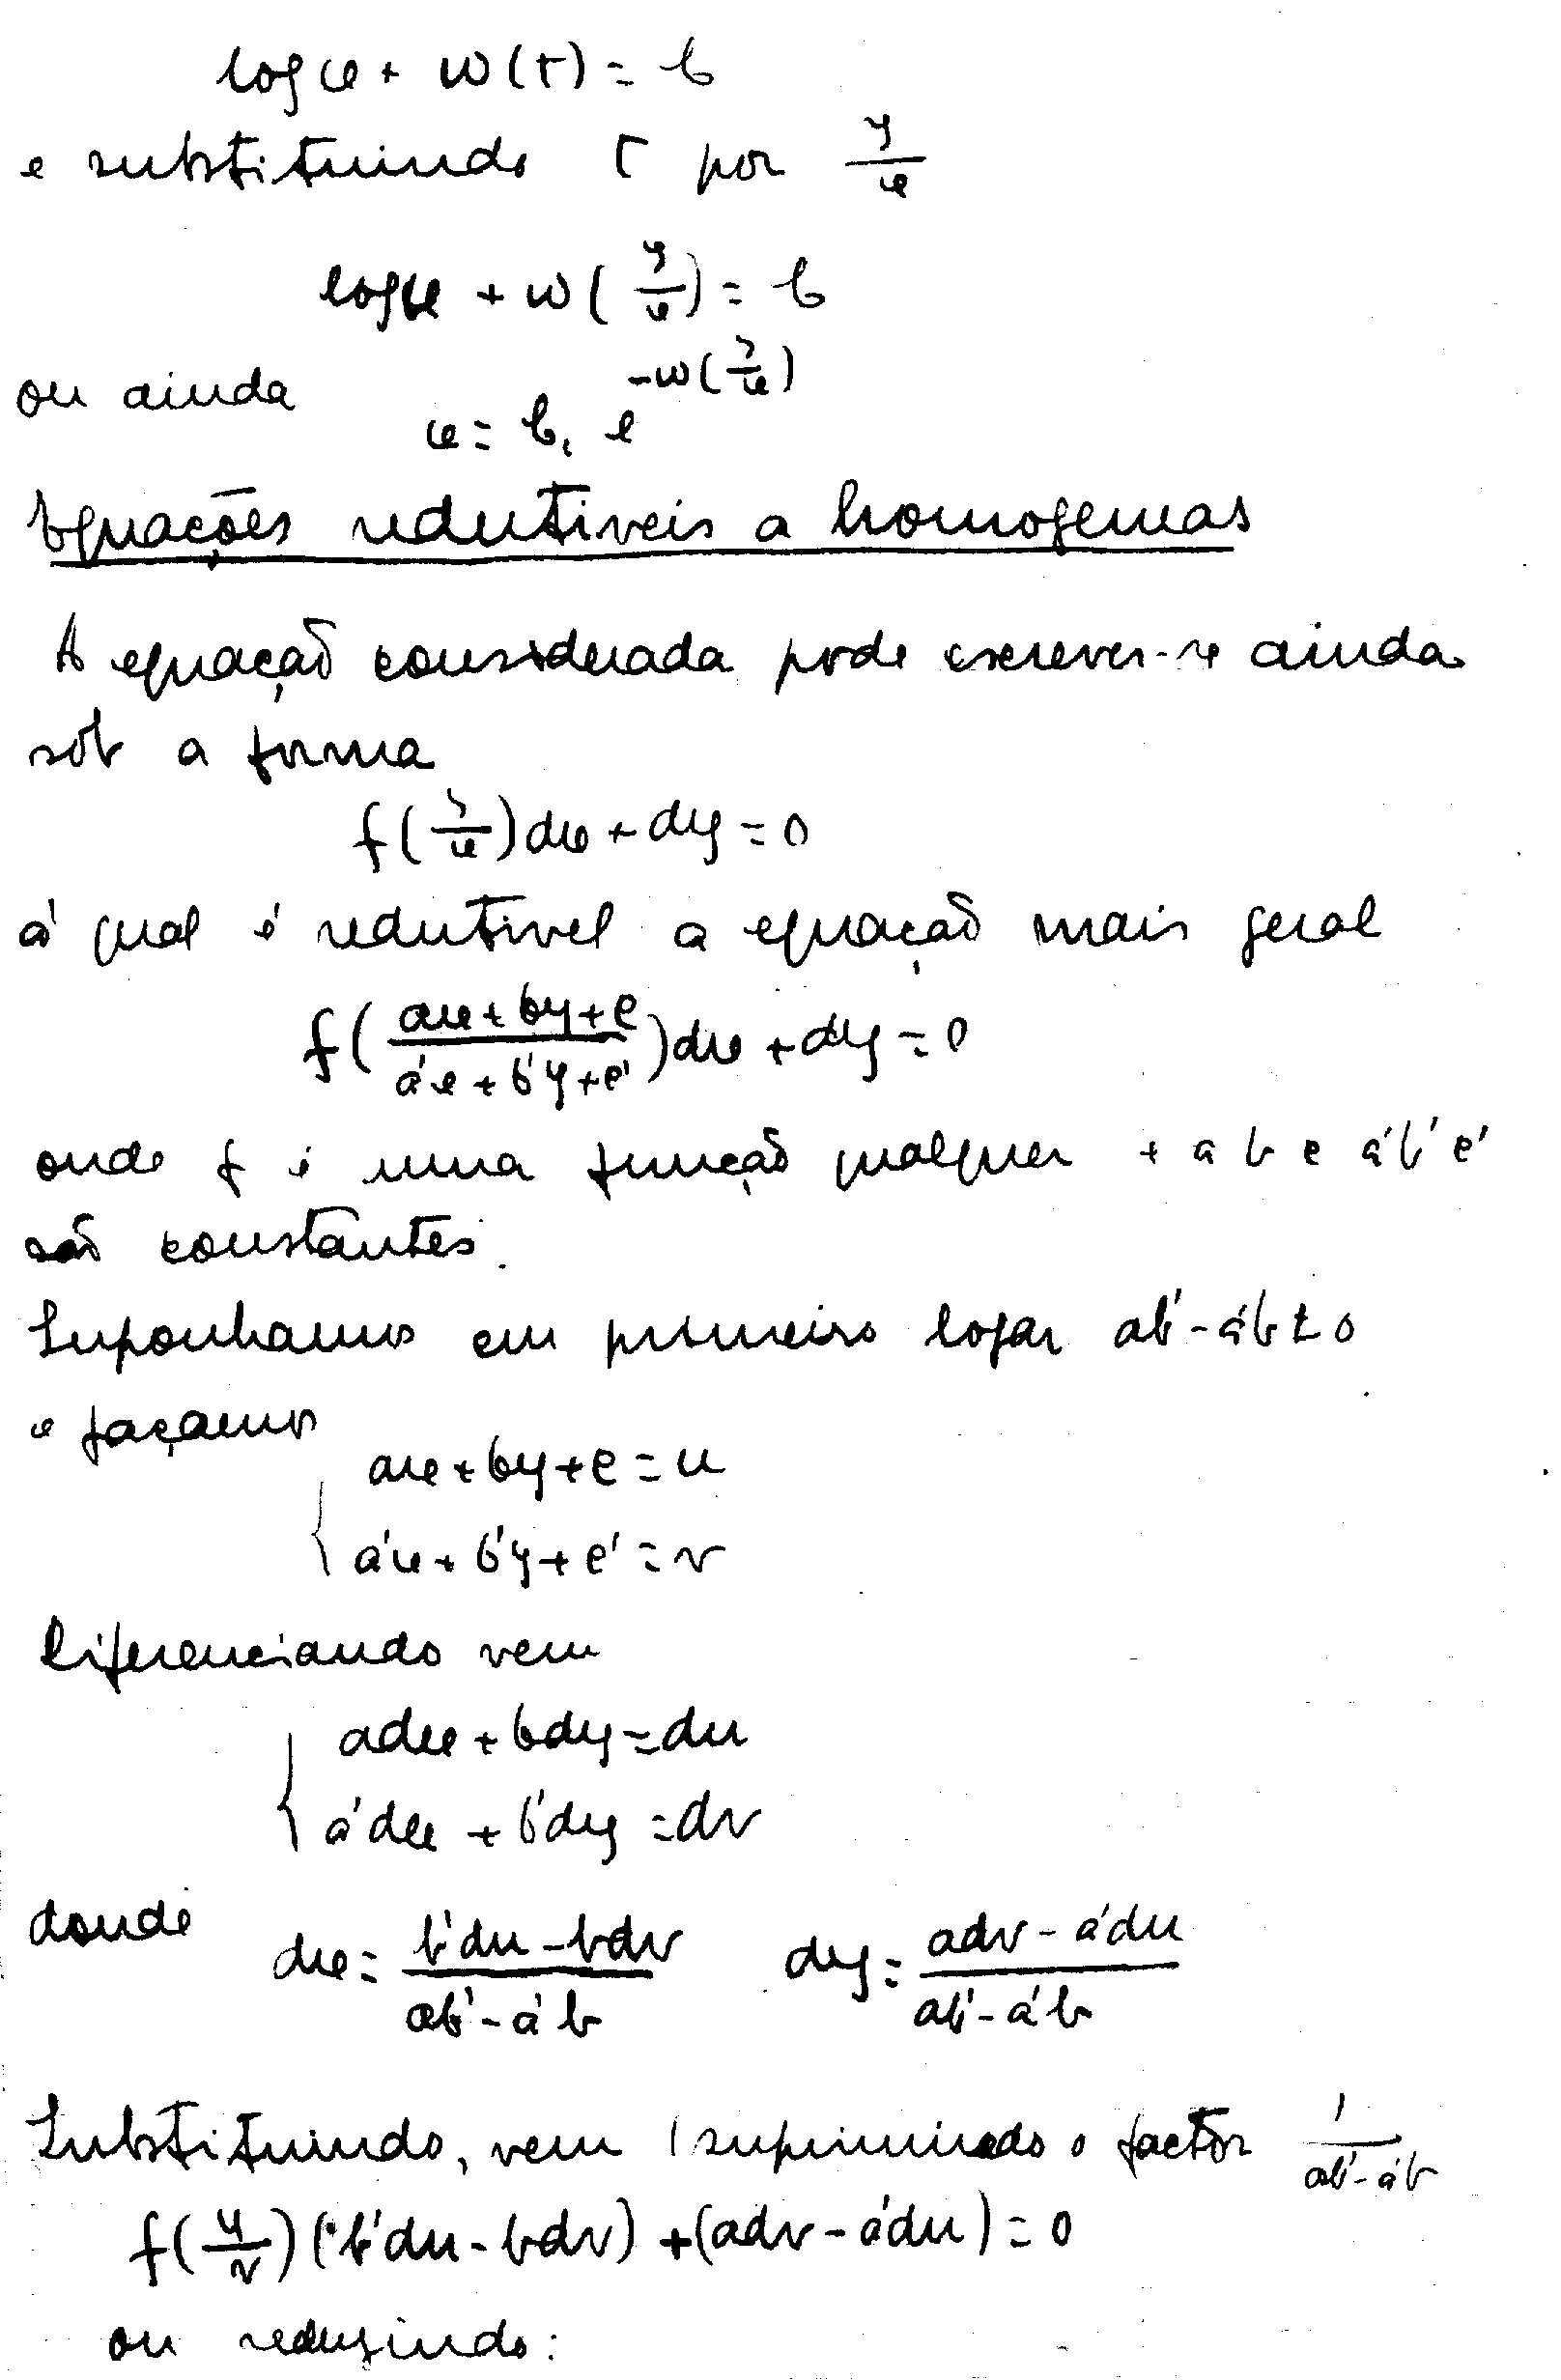 log x + w(t) = C
e substituindo t por y/x
log x + w(y/x) = C
ou ainda x = C₁ e^{-w(y/x)}
Equações redutiveis a homogeneas
A equação considerada pode escrever-se ainda
sôb a forma
f(y/x)dx + dy = 0
á qual é redutivel a equação mais geral
f((ax + by + c)/(a'x + b'y + c'))dx + dy = 0
onde f é uma função qualquer e a b c a' b' c'
são constantes.
Suponhamos em primeiro logar ab' - a'b ≠ 0
e façamos
ax + by + c = u
a'x + b'y + c' = v
Diferenciando vem
adx + bdy = du
a'dx + b'dy = dv
donde dx = (b'du - bdv)/(ab' - a'b) dy = (adv - a'du)/(ab' - a'b)
Substituindo, vem (suprimindo o factor 1/(ab' - a'b)
f(u/v)(b'du - bdv) + (adv - a'du) = 0
ou reduzindo: